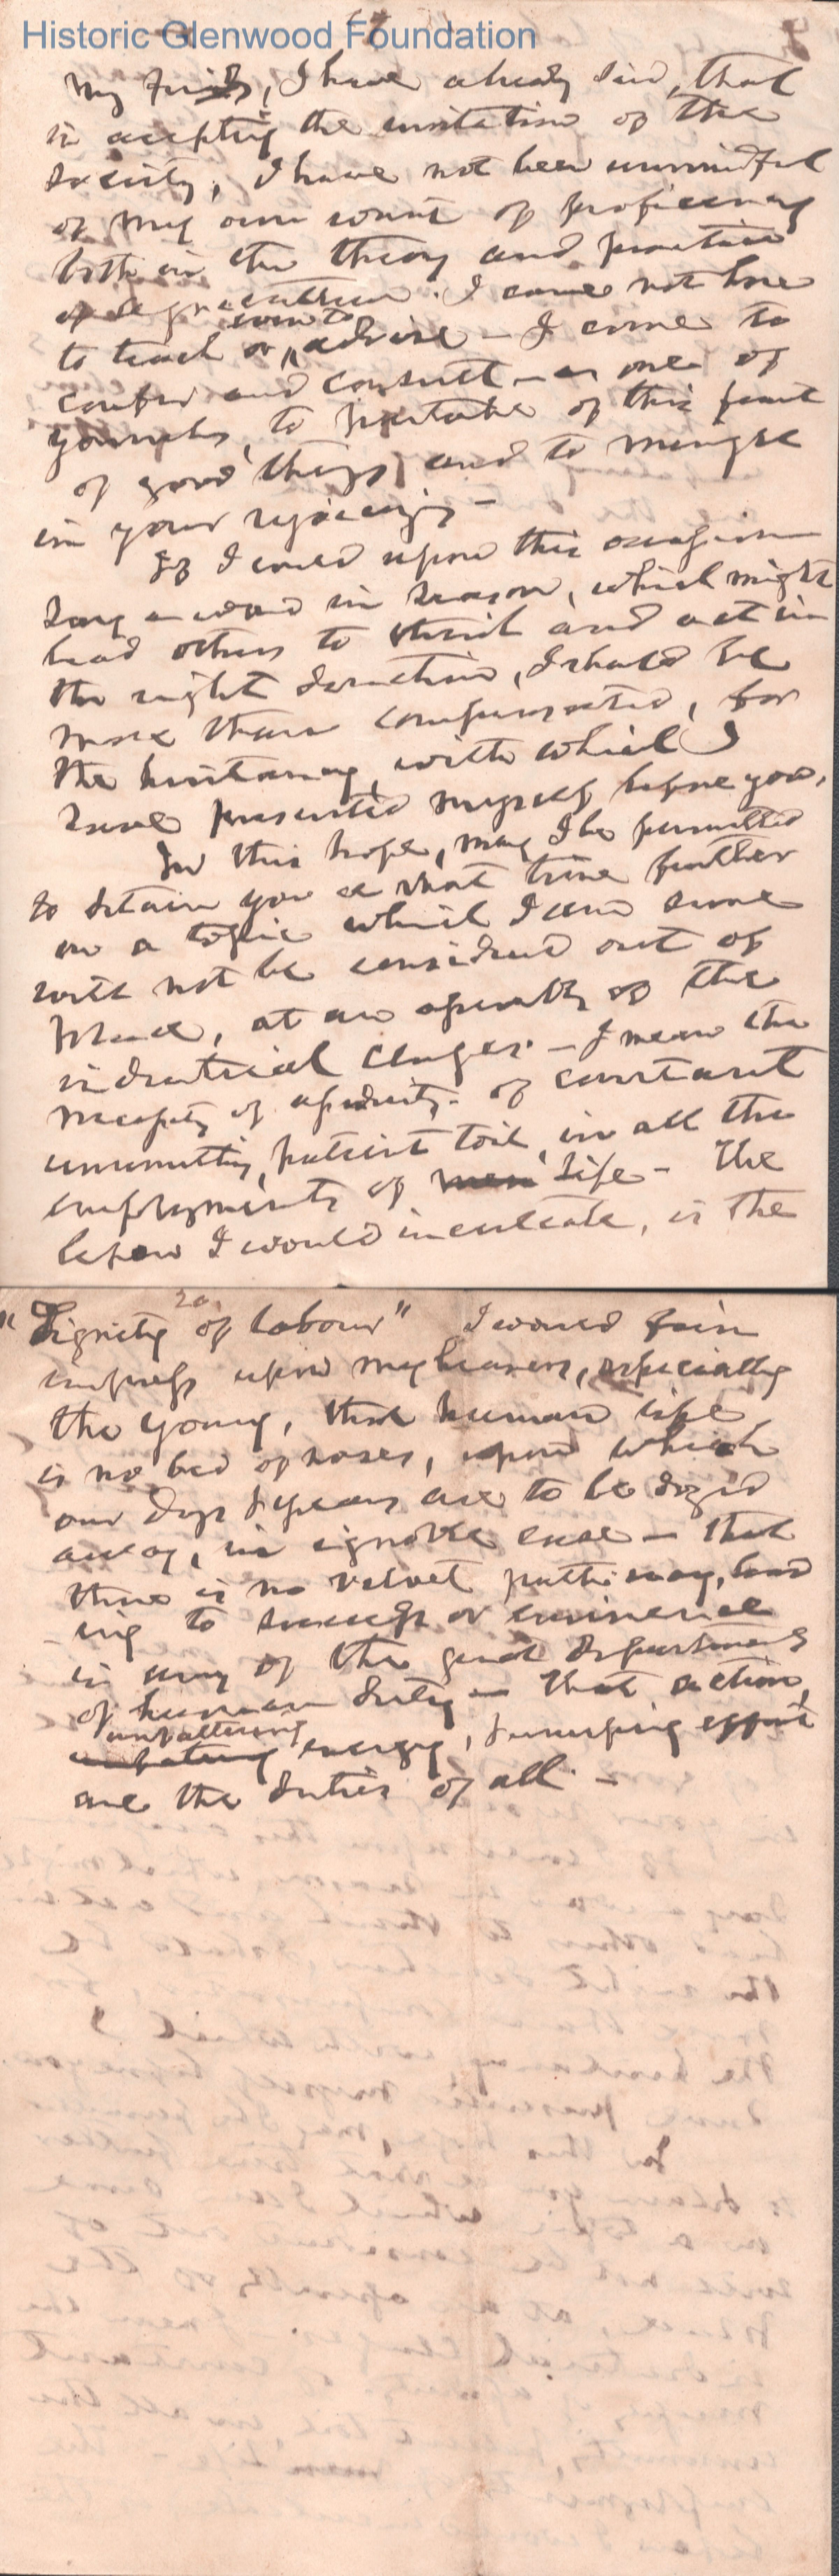 Historic Glenwood Foundation
My friends, I have already said, that
in accepting the invitation of the
Society, I have not been unmindful
of my own want of proficiency
both in the theory and practice
of Agriculture. I come not here
to teach or even to advise - I come to
confer and consult - as one of
yourselves, to partake of this feast
of good things, and to mingle
in your rejoicings -
If I could upon this occasion
say a word in season, which might
lead others to think and act in
the right direction, I should be
more than compensated, for
the hesitancy, with which I
have presented myself before you.
In this hope, may I be permitted
to detain you a short time further
on a topic which I am sure
will not be considered out of
place, at an assembly of the
industrial classes. - I mean the
necessity of assiduity - of constant
unremitting, patient toil, in all the
employments of men life - The
lesson I would inculcate, is the
20
"Dignity of labour" I would fain
impress upon my hearers, especially
the young, that human life
is no bed of roses, upon which
our days & years are to be dozed
away, in ignoble ease - that
there is no velvet pathway, lead
ing to success or eminence
in any of the great departments
of human duty - that action,
unfaltering
energy, unceasing effort
are the duties of all. -